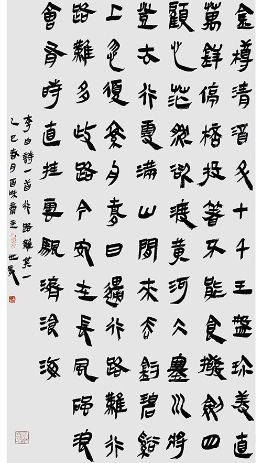 金樽清酒斗十千玉盤珍羞直
萬錢停杯投箸不能食拔劍四
顧心茫然欲渡黃河冰塞川將
登太行雪滿山閒來垂釣碧谿
上忽復乘舟夢日邊行路難行
路難多歧路今安在長風破浪
會有時直挂雲帆濟滄海
李白詩一首行路難其一
乙巳春月